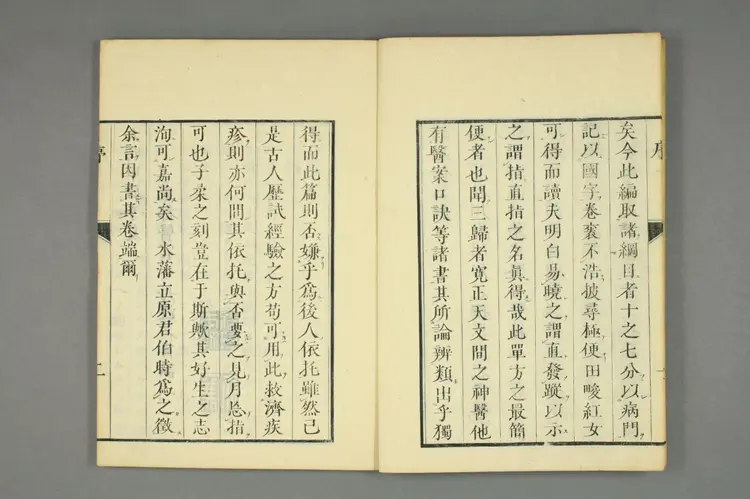 序
矣今此編取諸綱目者十之七分以病門
記以國字卷袠不浩披尋極便田畯紅女
可得而讀夫明白易曉之謂直發蹤以示
之謂指直指之名眞得哉此單方之最簡
便者也聞三歸者寛正天文間之神醫他
有醫案口訣等諸書其所論辨類出乎獨
得而此篇則否嫌乎爲後人依托雖然已
是古人歷試經驗之方苟可用此救濟疾
疹則亦何問其依托與否要之見月忘指
可也子柔之刻豈在于斯歟其好生之志
洵可嘉尚矣水藩立原君伯時爲之徵
余言因書其卷端爾
序
二